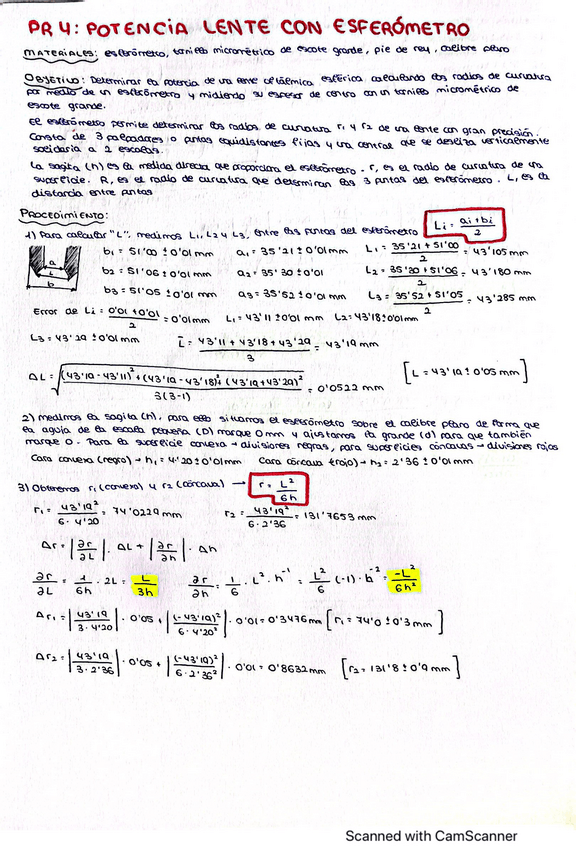 PR 4: POTENCIA LENTE CON ESFERÓMETRO
MATERIALES: esferómetro, tornillo micrométrico de escote grande, pie de rey, calibre plano
OBJETIVO: Determinar la potencia de una lente oftálmica esférica calculando los radios de curvatura
por medio de un esferómetro y midiendo su espesor de centro con un tornillo micrométrico de
escote grande.
El esferómetro permite determinar los radios de curvatura r₁ y r₂ de una lente con gran precisión.
Consta de 3 palpadores o puntas equidistantes fijas y una central que se desliza verticalmente
solidaria a 2 escalas.
La sagita (h) es la medida directa que proporciona el esferómetro. r, es el radio de curvatura de una
superficie. R, es el radio de curvatura que determinan las 3 puntas del esferómetro. L, es la
distancia entre puntas
PROCEDIMIENTO:
1) Para calcular "L", medimos L₁, L₂ y L₃, entre las puntas del esferómetro Li = (ai + bi)/2
a
L
b
b₁ = 51'00 ± 0'01 mm a₁ = 35'21 ± 0'01 mm L₁ = (35'21 + 51'00)/2 = 43'105 mm
b₂ = 51'06 ± 0'01 mm a₂ = 35'30 ± 0'01 L₂ = (35'30 + 51'06)/2 = 43'180 mm
b₃ = 51'05 ± 0'01 mm a₃ = 35'52 ± 0'01 mm L₃ = (35'52 + 51'05)/2 = 43'285 mm
Error de Li = (0'01 + 0'01)/2 = 0'01 mm L₁ = 43'11 ± 0'01 mm L₂ = 43'18 ± 0'01 mm
L₃ = 43'29 ± 0'01 mm L̄ = (43'11 + 43'18 + 43'29)/3 = 43'19 mm
ΔL = √((43'19 - 43'11)² + (43'19 - 43'18)² + (43'19 + 43'29)²)/(3(3-1)) = 0'0522 mm [L = 43'19 ± 0'05 mm]
2) Medimos la sagita (h), para ello situamos el esferómetro sobre el calibre plano de forma que
la aguja de la escala pequeña (D) marque 0 mm y ajustamos la grande (d) para que también
marque 0. Para la superficie convexa → divisiones negras, para superficies cóncavas → divisiones rojas
Cara convexa (negro) → h₁ = 4'20 ± 0'01 mm Cara cóncava (rojo) → h₂ = 2'36 ± 0'01 mm
3) Obtenemos r₁ (convexa) y r₂ (cóncava) → r = L²/6h
r₁ = 43'19²/(6 · 4'20) = 74'0229 mm r₂ = 43'19²/(6 · 2'36) = 131'7653 mm
Δr = |∂r/∂L| · ΔL + |∂r/∂h| · Δh
∂r/∂L = 1/6h · 2L = L/3h ∂r/∂h = 1/6 · L² · h⁻¹ = L²/6 (-1) · h⁻² = -L²/6h²
Δr₁ = |43'19/(3 · 4'20)| · 0'05 + |(-43'19)²/(6 · 4'20²)| · 0'01 = 0'3476 mm [r₁ = 74'0 ± 0'3 mm]
Δr₂ = |43'19/(3 · 2'36)| · 0'05 + |(-43'19)²/(6 · 2'36²)| · 0'01 = 0'8632 mm [r₂ = 131'8 ± 0'9 mm]
Scanned with CamScanner